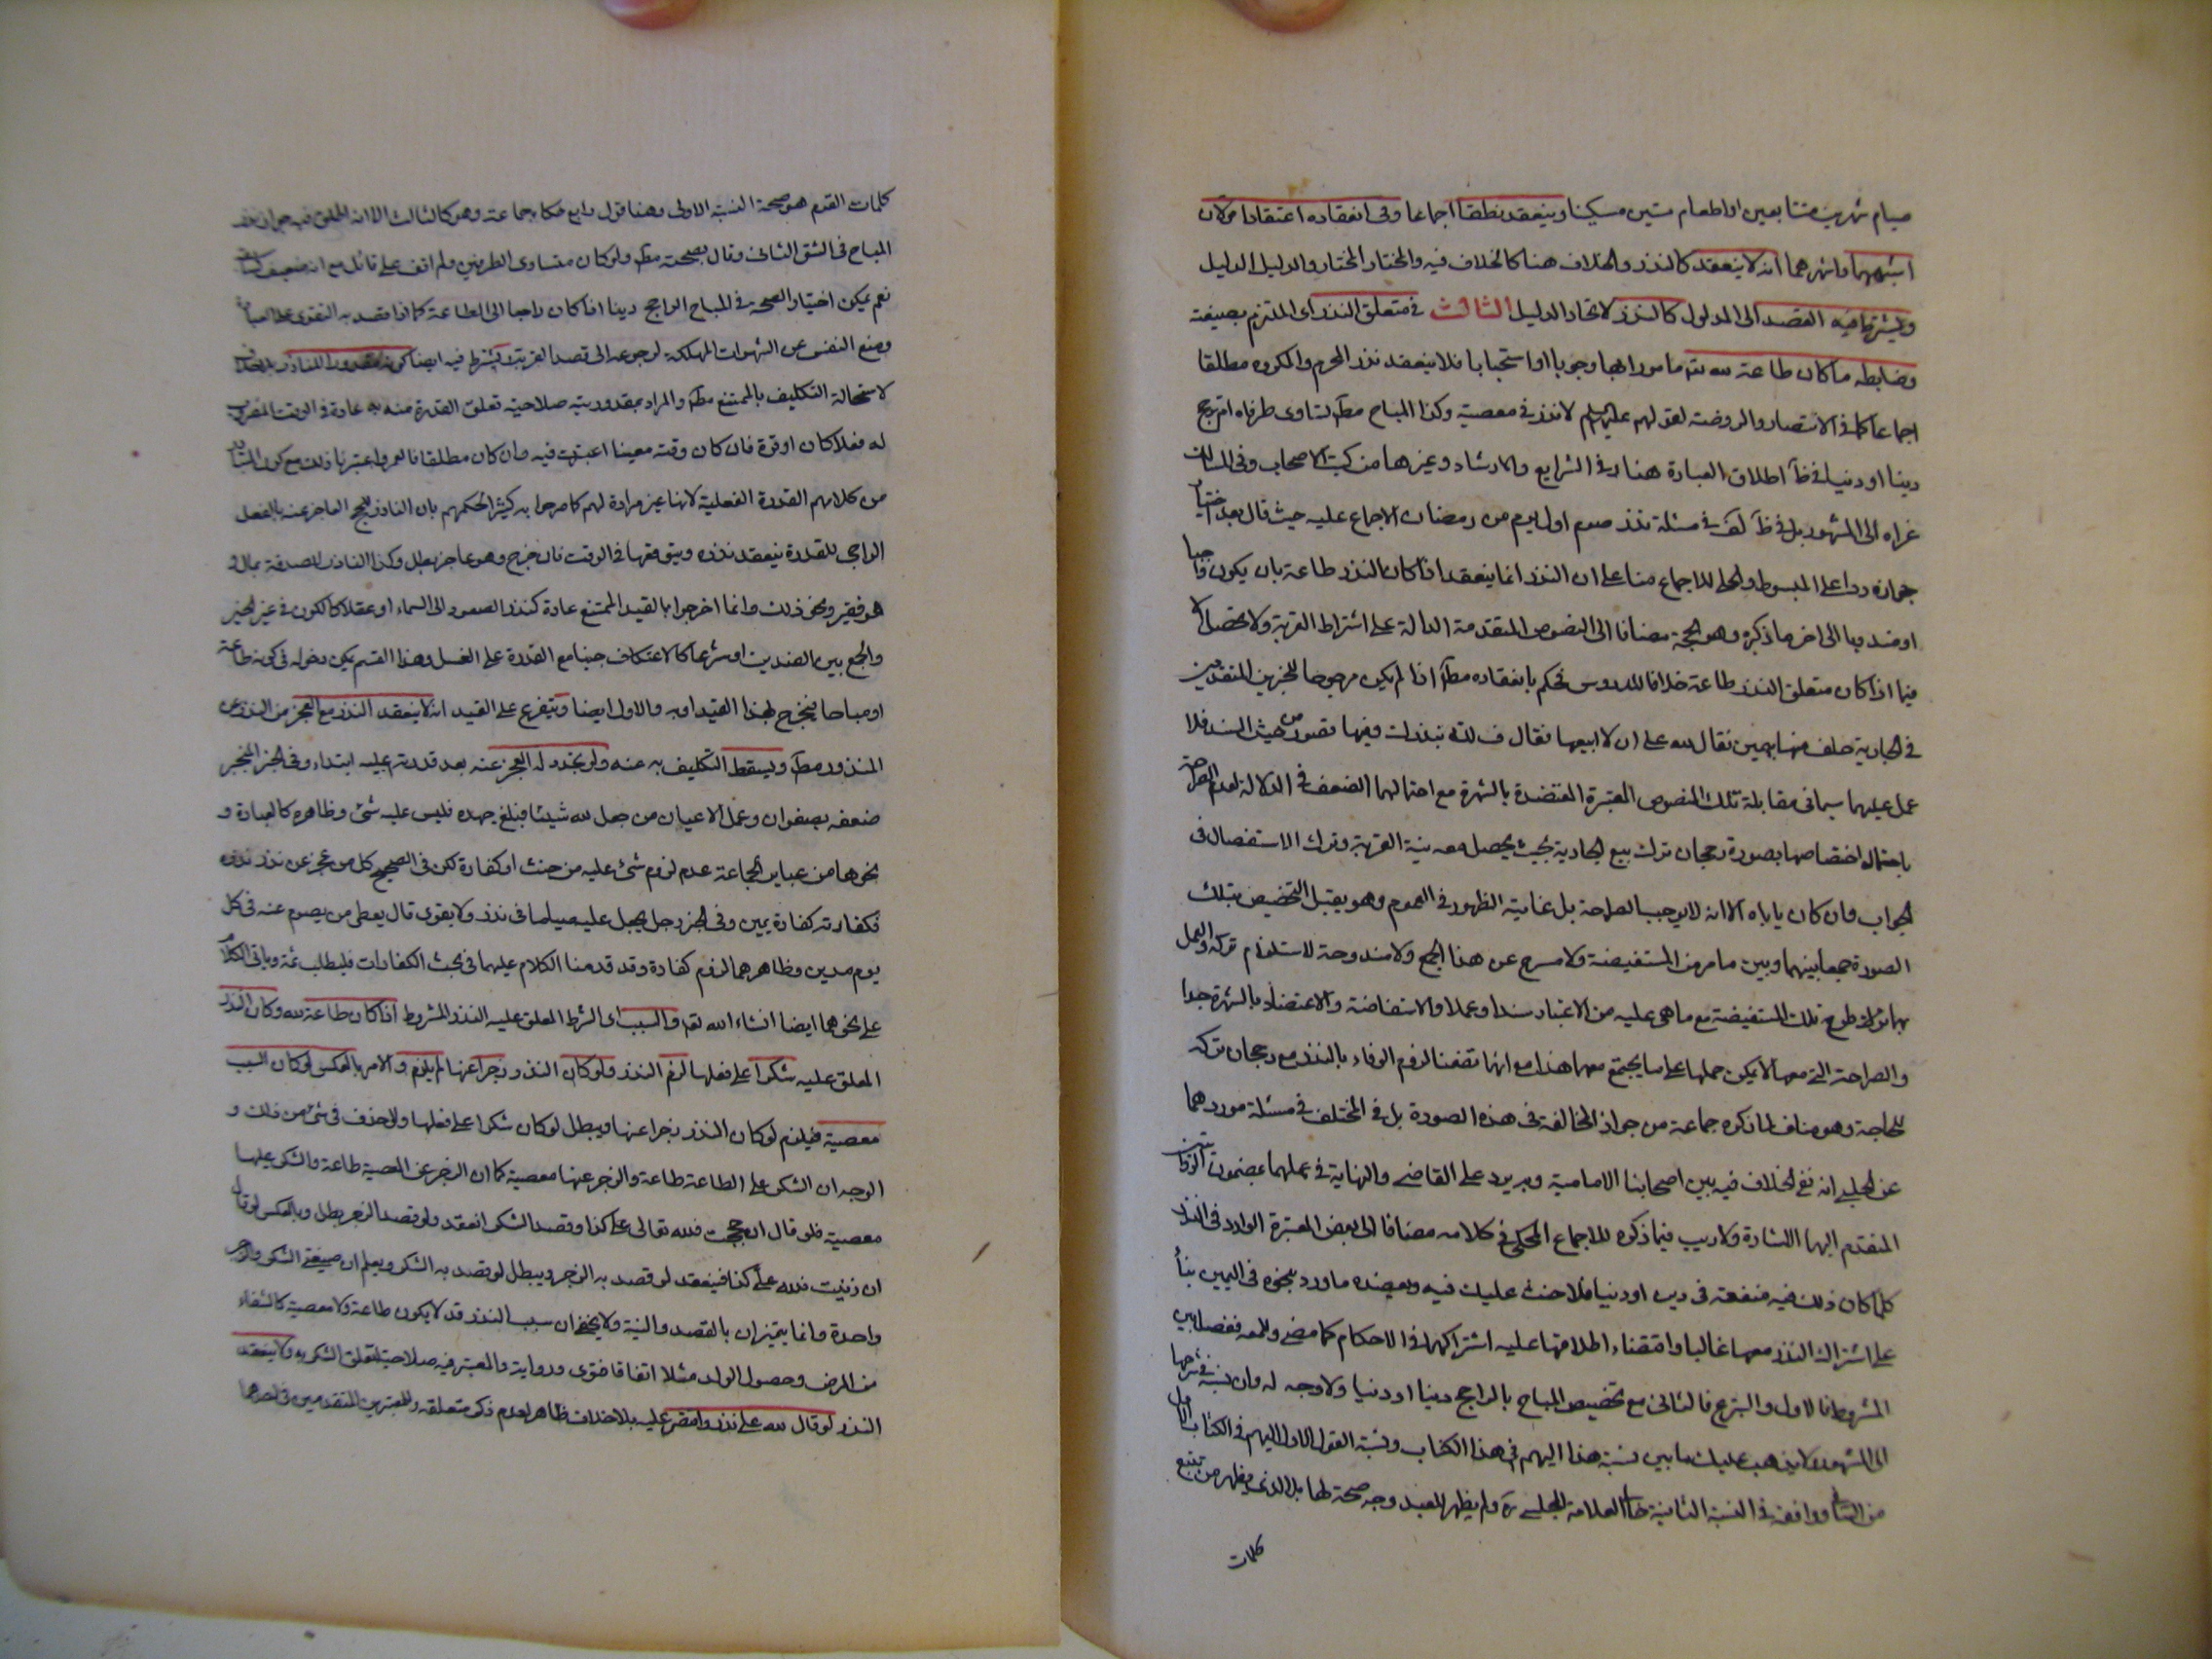 صيام شهرين متتابعين او اطعام ستين مسكينا وينعقد نطقا اجماعا وفى انعقاده اعتقادا قولان
اشبههما واشهرهما انه لا ينعقد كالنذر والخلاف هنا كالخلاف فيه والمختار المختار والدليل الدليل
ويشترط فيه القصد الى المدلول كالنذر لاتحاد الدليل الثالث فى متعلق النذر اى الملتزم بصيغته
وضابطه ما كان طاعة لله مامورا بها وجوبا او استحبابا فلا ينعقد نذر المحرم والمكروه مطلقا
اجماعا كما فى الانتصار والروضة لقولهم عليهم لا نذر فى معصية وكذا المباح مط لتساوى طرفاه ام ترجح
دينا او دنيا فى ظ اطلاق العبارة هنا وفى الشرايع والارشاد وغيرها من كتب الاصحاب وفى المسالك
عزاه الى المشهور بل فى ظ فى مسئلة نذر صوم اول يوم من رمضان الاجماع عليه حيث قال بعد اختيار
جوازه ردا على المبسوط والحلى للاجماع منا على ان النذر انما ينعقد اذا كان النذر طاعة بان يكون واجبا
او مندوبا الى اخر ما ذكره وهو الحجة مضافا الى النصوص المتقدمة الدالة على اشتراط القربة ولا تحصل الا
فيما اذا كان متعلق النذر طاعة خلافا للدروس فحكم بانعقاده مط اذا لم يكن مرجوحا للخبرين المتقدمين
فى الجارية حلف منها بيمين فقال لله على ان لا ابيعها فقال ف لله بنذرك وفيها قصور من حيث السند فلا
عمل عليهما سيما فى مقابلة تلك النصوص المعتبرة المعتضدة بالشهرة مع احتمالهما الضعف فى الدلالة لعدم الصراحة
باحتمال اختصاصها بصورة رجحان ترك بيع الجارية بحيث يحصل معه نية القربة وترك الاستفصال فى
الجواب وان كان ياباه الا انه لا يوجب الصراحة بل غايته الظهور فى العموم وهو يقبل التخصيص بتلك
الصورة جمعا بينهما وبين ما مر من المستفيضة ولا مسرح عن هذا الجمع ولا مندوحة لاستلزام تركه والعمل
بهما طرح تلك المستفيضة مع ما هى عليه من الاعتبار سندا وعملا والاستفاضة والاعتضاد بالشهرة جدا
والصراحة التى معها لا يمكن حملها على ما يجتمع معهما هذا مع انهما تضمنا لزوم الوفاء بالنذر مع رجحان تركه
للحاجة وهو مناف لما ذكره جماعة من جواز المخالفة فى هذه الصورة بل فى المختلف فى مسئلة موردهما
عن الحلى انه نفى الخلاف فيه بين اصحابنا الامامية وبه يرد على القاضى والنهاية فى عملهما بمضمون الروايتين
المتقدم اليها الاشارة ولا ريب فيما ذكره للاجماع المحكى فى كلامه مضافا الى بعض المعتبرة الوارد فى النذر
كلما كان ذلك فيه منفعة فى دين او دنيا فلا حنث عليك فيه ويعضده ما ورد بنحوه فى اليمين بناء
على اشتراك النذر معها غالبا واقتضاء اطلاقها عليه اشتراكهما فى الاحكام كما مضى وللمعه ففصل بين
المشروط فالاول والتبرع فالثانى مع تخصيص المباح بالراجح دينا او دنيا ولا وجه له وان نسبه فى شرحها
الى المشهور ولا يذهب عليك ما بين نسبة هذا اليهم فى هذا الكتاب ونسبة القول الاول اليهم فى الكتاب الاول
من التنافى ووافقه فى النسبة الثانية خالى العلامة المجلسى ره ولم يظهر للعبد وجه صحة لها بل الذى يظهر من تتبع
كلمات
كلمات القوم هو صحة النسبة الاولى وهنا قول رابع حكاه جماعة وهو كالثالث الا انه اطلق فيه جواز نذر
المباح فى الشق الثانى وقال بصحته مط ولو كان متساوى الطرفين ولم اقف على قائله مع انه ضعيف كسابقه
نعم يمكن اختيار الصحة فى المباح الراجح دينا اذا كان راجعا الى الطاعة كما اذا قصد به التقوى على العبادة
ومنع النفس عن الشهوات المهلكة لرجوعه الى قصد القربة ويشترط فيه ايضا كونه مقدورا للناذر بلا خلاف
لاستحالة التكليف بالممتنع مط والمراد بمقدوريته صلاحية تعلق القدرة منه به عادة فى الوقت المضروب
له فعلا كان او قوة فان كان وقته معينا اعتبرت فيه وان كان مطلقا فالعمر واعتبرنا ذلك مع كون المتبادر
من كلامهم القدرة الفعلية لانها غير مرادة لهم كما صرحوا به كثيرا لحكمهم بان الناذر للحج العاجز عنه بالفعل
الراجى للقدرة ينعقد نذره ويتوقعها فى الوقت فان خرج وهو عاجز بطل وكذا الناذر للصدقة بمال و
هو فقير ونحو ذلك وانما اخرجوا بالقيد الممتنع عادة كنذر الصعود الى السماء او عقلا كالكون فى غير الحيز
والجمع بين الضدين او شرعا كالاعتكاف جنبا مع القدرة على الغسل وهذا القسم يمكن دخوله فى كونه طاعة
او مباحا فيخرج بهذا القيد او به والاول ايضا ويتفرع على القيد انه لا ينعقد النذر مع العجز من النذر عن
المنذور مط ويسقط التكليف به عنه ولو تجدد له العجز عنه بعد قدرته عليه ابتداء وفى الخبر المنجبر
ضعفه بصفوان وعمل الاعيان من جعل لله شيئا فبلغ جهده فليس عليه شئ وظاهره كالعبارة و
نحوها من عباير الجماعة عدم لزوم شئ عليه من حنث او كفارة لكن فى الصحيح كل من عجز عن نذر نذره
فكفارته كفارة يمين وفى الخبر رجل يجعل عليه صياما فى نذر ولا يقوى قال يعطى من يصوم عنه فى كل
يوم مدين وظاهرهما لزوم كفارة وقد قدمنا الكلام عليهما فى بحث الكفارات فليطلب ثمة وياتى الكلام
على نحوهما ايضا انشاء الله تعا والسبب اى الشرط المعلق عليه النذر المشروط اذا كان طاعة لله وكان النذر
المعلق عليه شكرا على فعلها لزم النذر ولو كان النذر زجرا عنها لم يلزم والامر بالعكس لو كان السبب
معصية فيلزم لو كان النذر زجرا عنها ويبطل لو كان شكرا على فعلها ولا خلاف فى شئ من ذلك و
الوجه ان الشكر على الطاعة طاعة والزجر عنها معصية كما ان الزجر عن المعصية طاعة والشكر عليها
معصية فلو قال ان حججت فلله تعالى على كذا وقصد الشكر انعقد ولو قصد الزجر بطل وبالعكس لو قال
ان زنيت فلله على كذا فينعقد لو قصد به الزجر ويبطل لو قصد به الشكر ويعلم ان صيغتى الشكر والزجر
واحدة وانما يتميزان بالقصد والنية ولا يخفى ان سبب النذر قد لا يكون طاعة ولا معصية كالشفاء
من المرض وحصول الولد مثلا اتفاقا فتوى ورواية والمعتبر فيه صلاحية تعلق الشكر به ولا ينعقد
النذر لو قال لله على نذر واقتصر عليه بلا خلاف ظاهر لعدم ذكر متعلقه وللمعتبرين المتقدمين فى احدهما